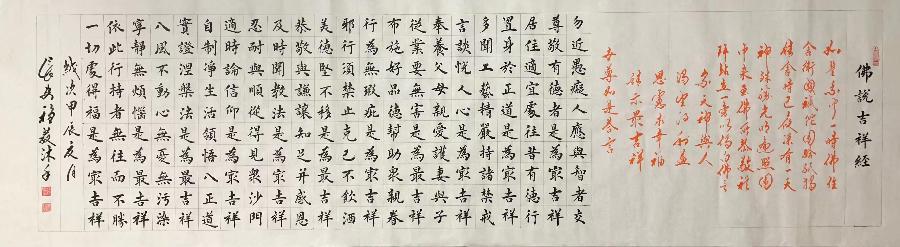 佛說吉祥經
如是我聞一時佛住
舍衛國祇陀園給孤獨
精舍時已夜深有一天
神殊勝光明遍照園
中來至佛所恭敬禮
拜站立一旁以偈白佛言
眾天神與人
渴望得利益
思慮求幸福
請示最吉祥
世尊如是答言
勿近愚癡人應與智者交
尊敬有德者是為最吉祥
居住適宜處往昔有德行
置身於正道是為最吉祥
多聞工藝精嚴持諸禁戒
言談悅人心是為最吉祥
奉養父母親愛護妻與子
從業要無害是為最吉祥
布施好品德幫助眾親眷
行為無瑕疵是為最吉祥
邪行須禁止克己不飲酒
美德堅不移是為最吉祥
恭敬與謙讓知足并感恩
及時聞教法是為最吉祥
忍耐與順從得見眾沙門
適時論信仰是為最吉祥
自制淨生活領悟八正道
實證涅槃法是為最吉祥
八風不動心無憂無污染
寧靜無煩惱是為最吉祥
依此行持者無往而不勝
一切處得福是為最吉祥
歲次甲辰夏月
長安 沐手